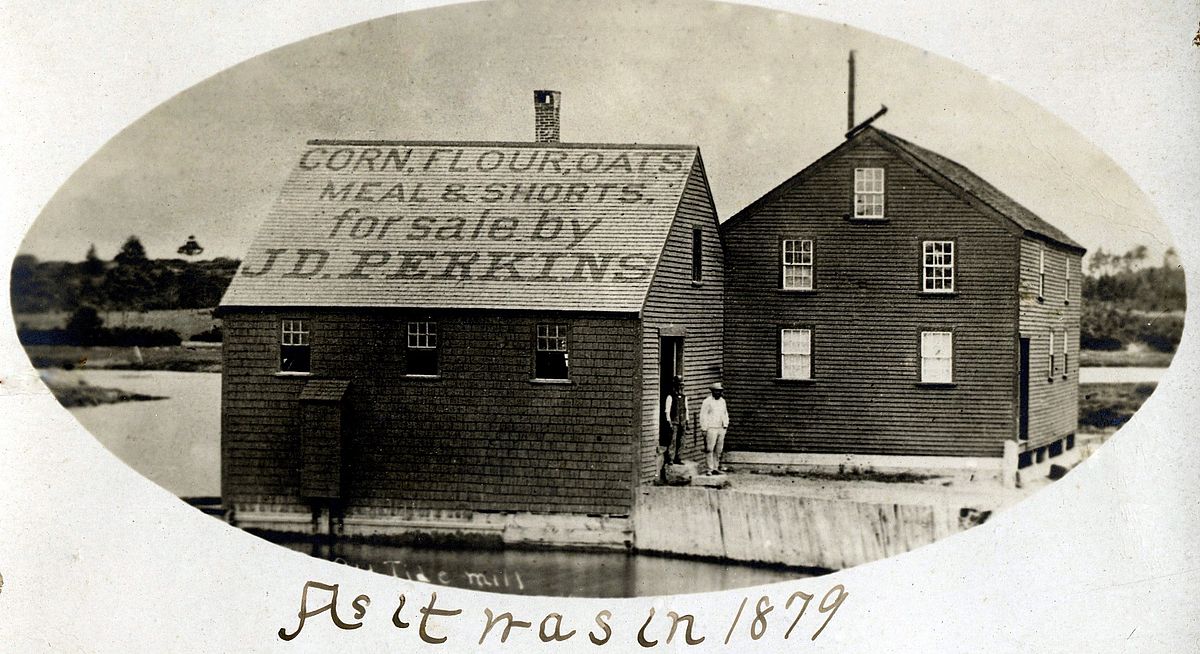 CORN, FLOUR, OATS
MEAL & SHORTS.
for sale by
J.D. PERKINS
Tide mill
As it was in 1879